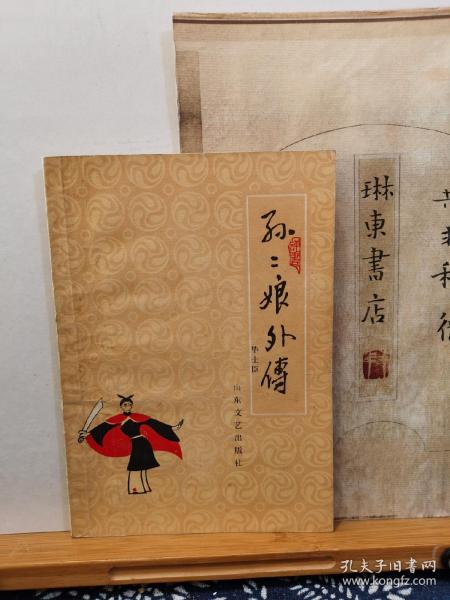 孙二娘外傳
毕士臣
山东文艺出版社
琳東書店
孔夫子旧书网
www.kongfz.com